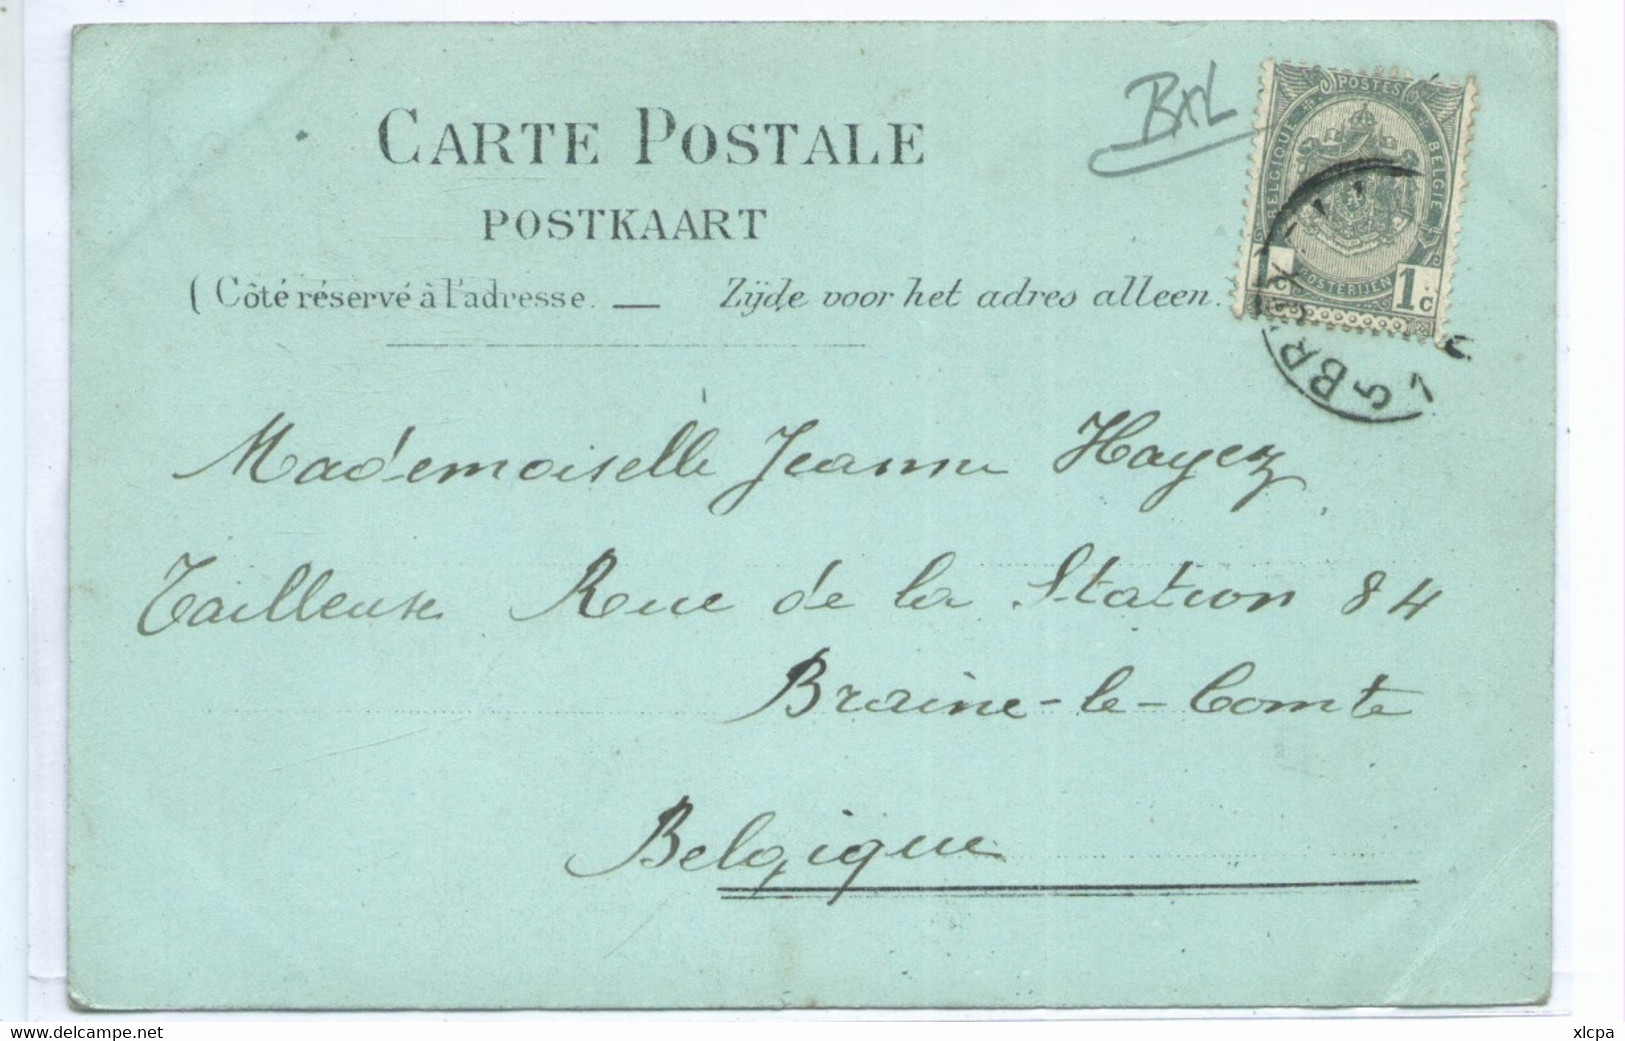 CARTE POSTALE
BXL
POSTKAART
(Côté réservé à l'adresse. — Zijde voor het adres alleen.
POSTES
BELGIQUE
BELGIE
POSTERIJEN
1c
Mademoiselle Jeanne Hayez
Tailleuse Rue de la Station 84
Braine-le-Comte
Belgique
www.delcampe.net
xlcpa